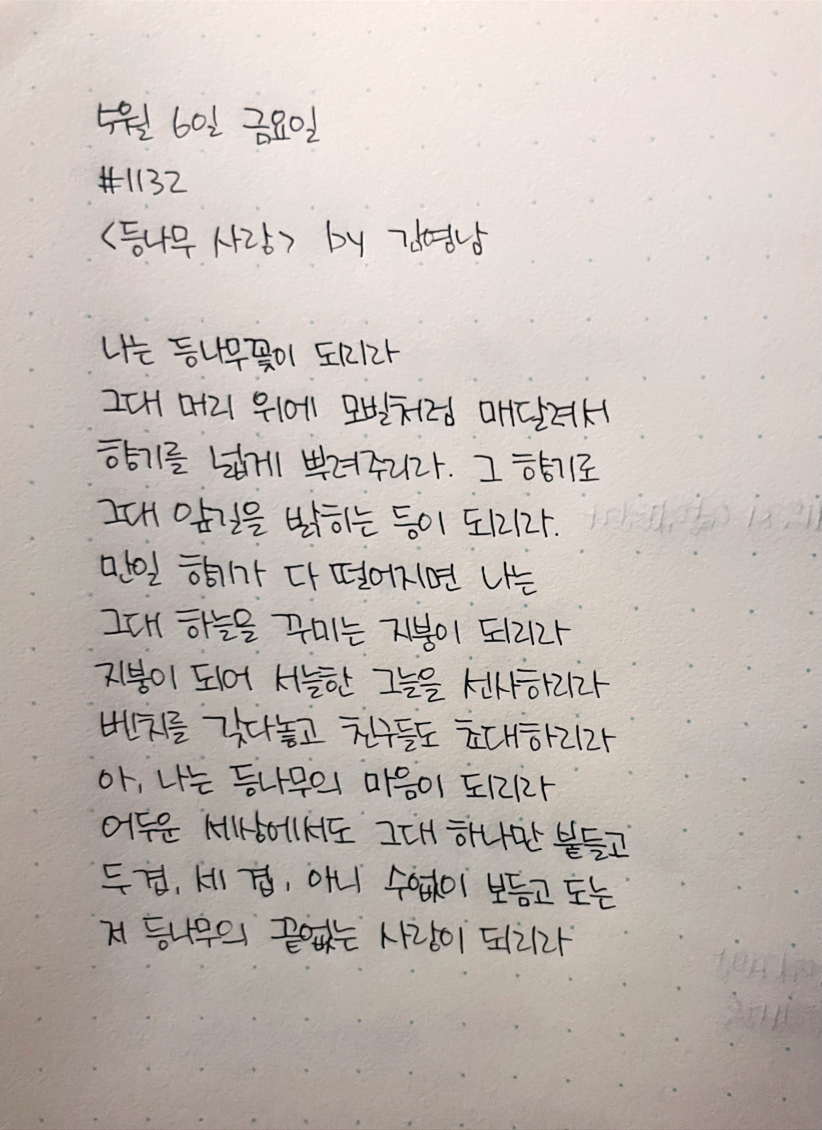 5월 6일 금요일
#1132
<등나무 사랑> by 김영남
나는 등나무꽃이 되리라
그대 머리 위에 모빌처럼 매달려서
향기를 넓게 뿌려주리라. 그 향기로
그대 앞길을 밝히는 등이 되리라.
만일 향기가 다 떨어지면 나는
그대 하늘을 꾸미는 지붕이 되리라
지붕이 되어 서늘한 그늘을 선사하리라
벤치를 갖다놓고 친구들도 초대하리라
아, 나는 등나무의 마음이 되리라
어두운 세상에서도 그대 하나만 붙들고
두 겹, 세 겹, 아니 수없이 보듬고 도는
저 등나무의 끝없는 사랑이 되리라